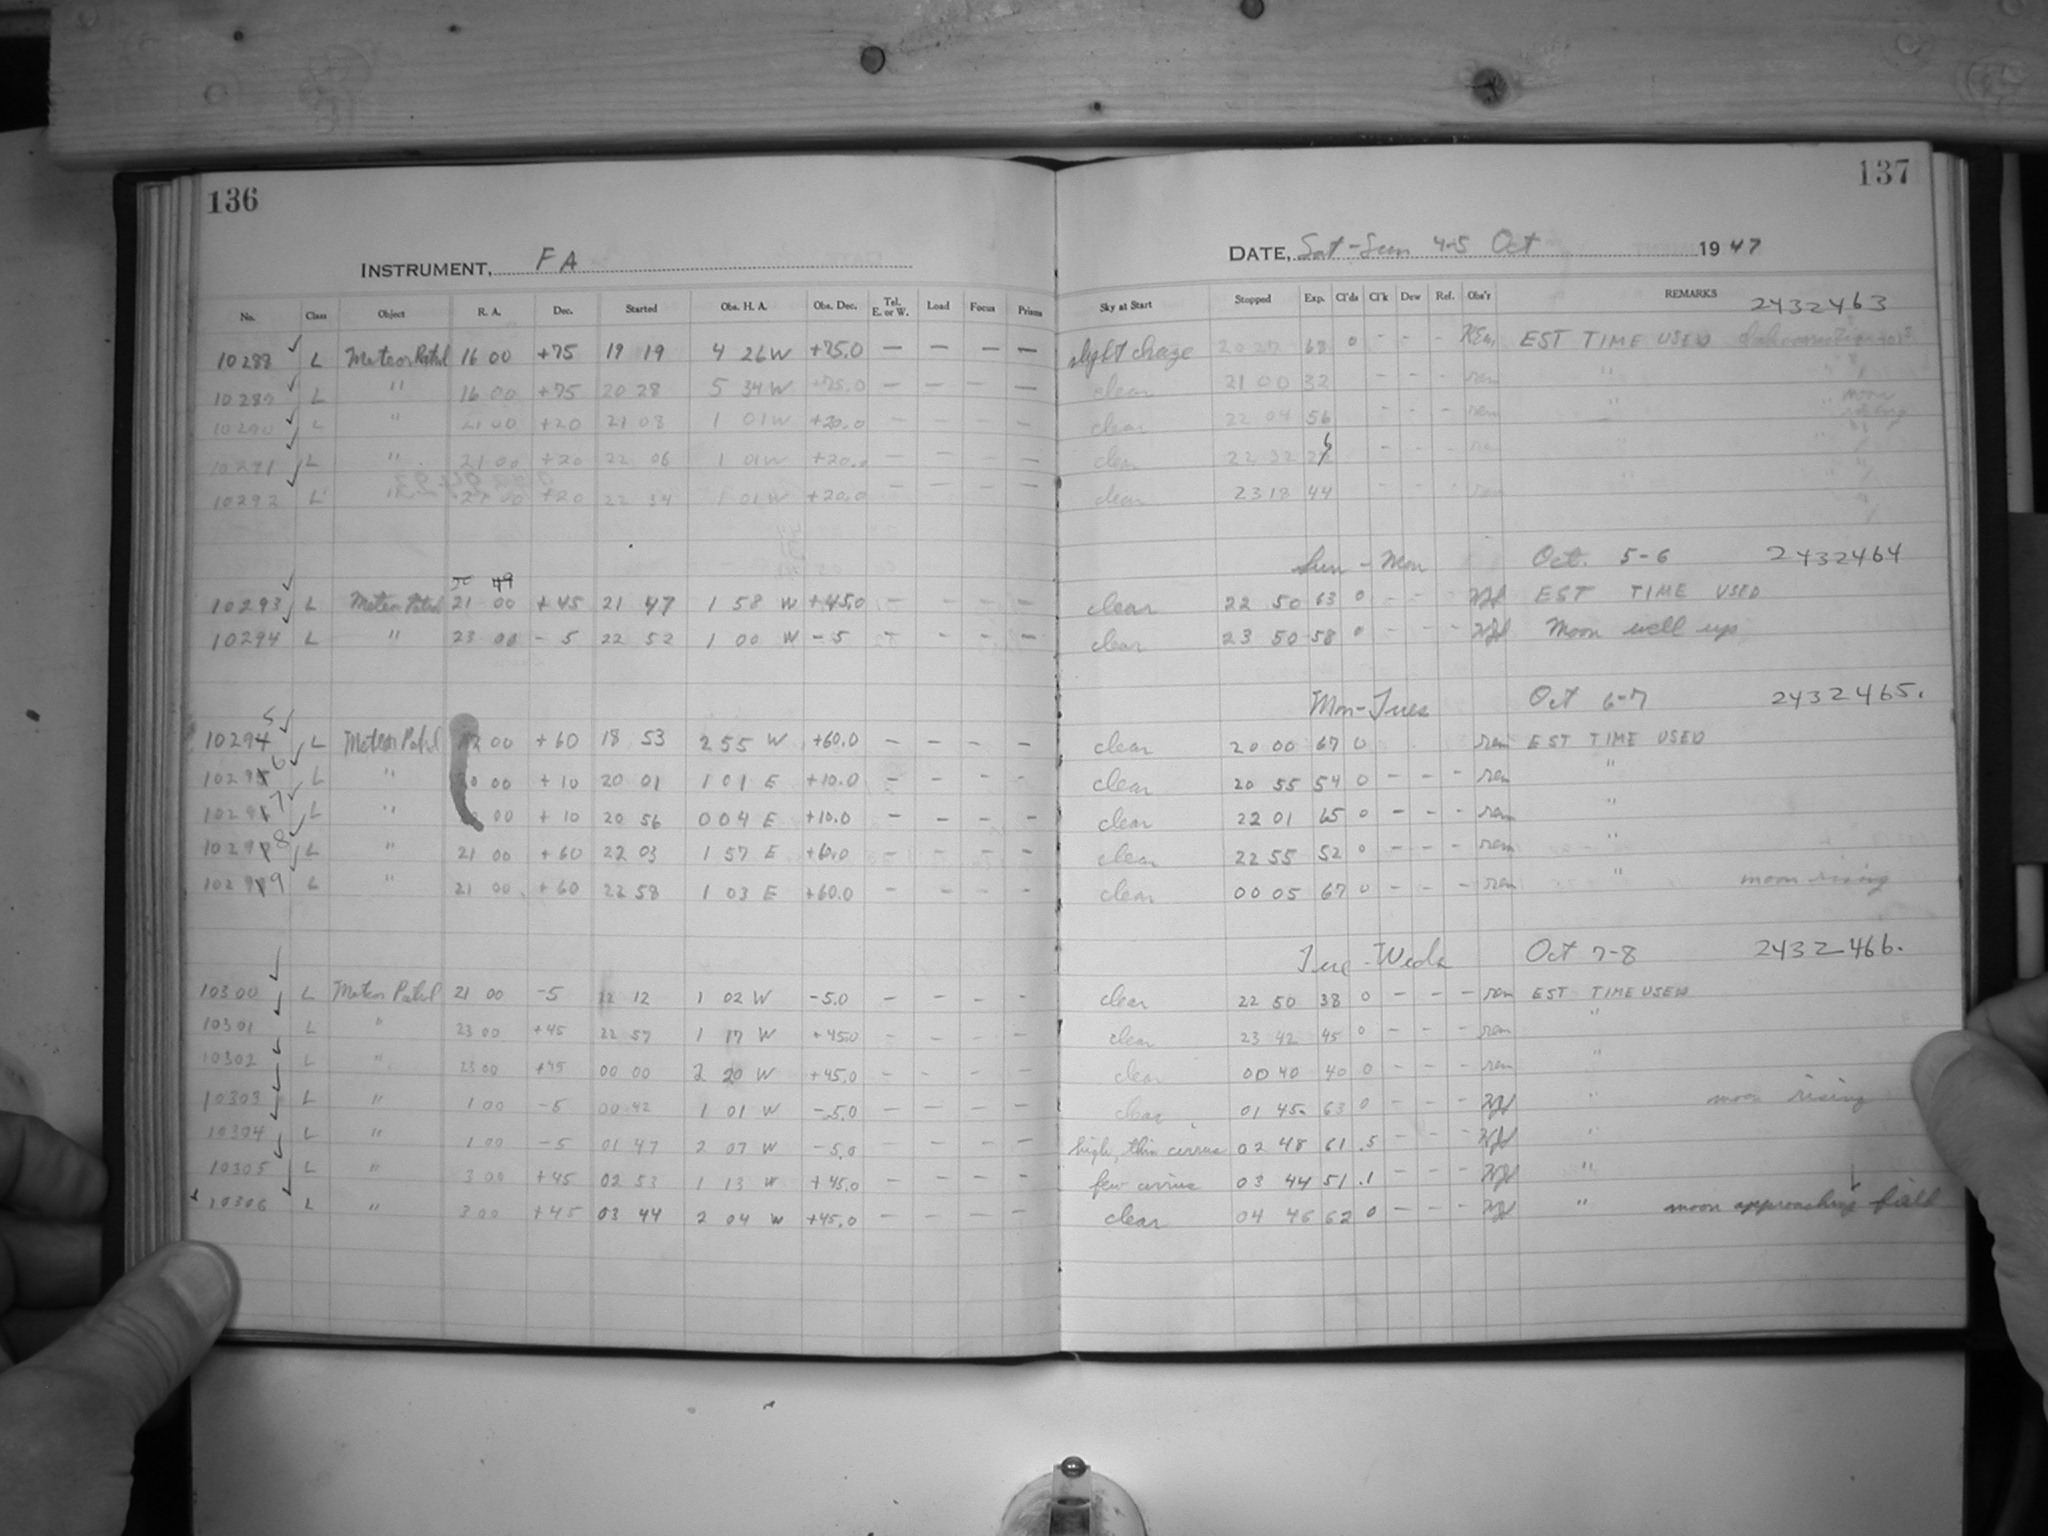 136
137
INSTRUMENT, F A
DATE, Sat-Sun 4-5 Oct 1947
No. Class Object R. A. Dec. Started Obs. H. A. Obs. Dec. Tel. E. or W. Load Focus Prisms Sky at Start Stopped Exp. Cl'ds Cl'k Dew Ref. Obs'r REMARKS 2432463
10288 L Meteor Patrol 16 00 +75 19 19 4 26 W +75.0 — — — — 20 27 68 0 - - - EST TIME USED
10289 L " 16 00 +75 20 28 5 34 W +75.0 — — — — clear 21 00 32 - - - rem "
10290 L " 21 00 +20 21 08 1 01 W +20.0 — — — — clear 22 04 56 - - - rem " moon rising
10291 L " 21 00 +20 22 06 1 01 W +20.0 — — — — clear 22 32 26 - - - rem "
10292 L " 21 00 +20 22 34 1 01 W +20.0 — — — — clear 23 18 44 - - - rem "
Sun - Mon Oct. 5-6 2432464
10293 L Meteor Patrol 21 00 +45 21 47 1 58 W +45.0 — — — — clear 22 50 63 0 - - - EST TIME USED
10294 L " 23 00 - 5 22 52 1 00 W - 5 — — — — clear 23 50 58 0 - - - Moon well up
Mon-Tues Oct 6-7 2432465.
10295 L Meteor Patrol 00 +60 18 53 2 55 W +60.0 — — — — clear 20 00 67 0 rem EST TIME USED
10296 L " 00 +10 20 01 1 01 E +10.0 — — — — clear 20 55 54 0 - - - rem "
10297 L " 00 +10 20 56 0 04 E +10.0 — — — — clear 22 01 65 0 - - - rem "
10298 L " 21 00 +60 22 03 1 57 E +60.0 — — — — clear 22 55 52 0 - - - rem "
10299 L " 21 00 +60 22 58 1 03 E +60.0 — — — — clear 00 05 67 0 - - - rem " moon rising
Tue-Weds Oct 7-8 2432466.
10300 L Meteor Patrol 21 00 -5 12 1 02 W -5.0 — — — — clear 22 50 38 0 - - - rem EST TIME USED
10301 L " 23 00 +45 22 57 1 17 W +45.0 — — — — clear 23 42 45 0 - - - rem "
10302 L " 23 00 +45 00 00 2 20 W +45.0 — — — — clear 00 40 40 0 - - - rem "
10303 L " 1 00 -5 00 42 1 01 W -5.0 — — — — clear 01 45 63 0 - - - " moon rising
10304 L " 1 00 -5 01 47 2 07 W -5.0 — — — — high, thin cirrus 02 48 61 .5 - - - "
10305 L " 3 00 +45 02 53 1 13 W +45.0 — — — — few cirrus 03 44 51 .1 - - - "
10306 L " 3 00 +45 03 44 2 04 W +45.0 — — — — clear 04 46 62 0 - - - " moon approaching field